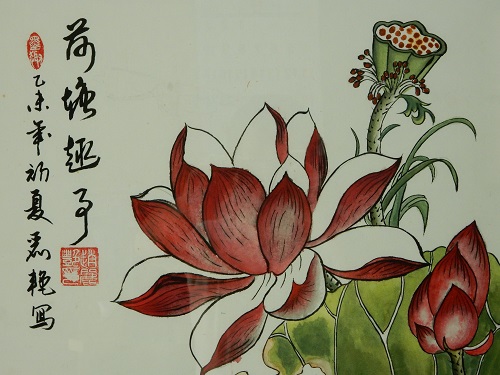 荷塘趣事
乙未年初夏君艳写